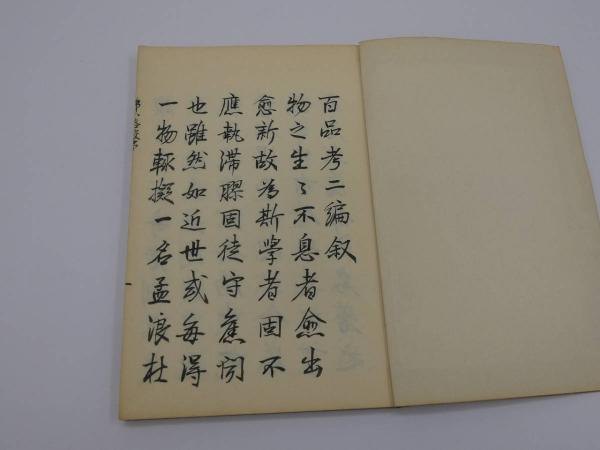 百品考二編叙
物之生〻不息者愈出
愈新故為斯學者固不
應執滯膠固徒守舊聞
也雖然如近世或每得
一物輒擬一名孟浪杜